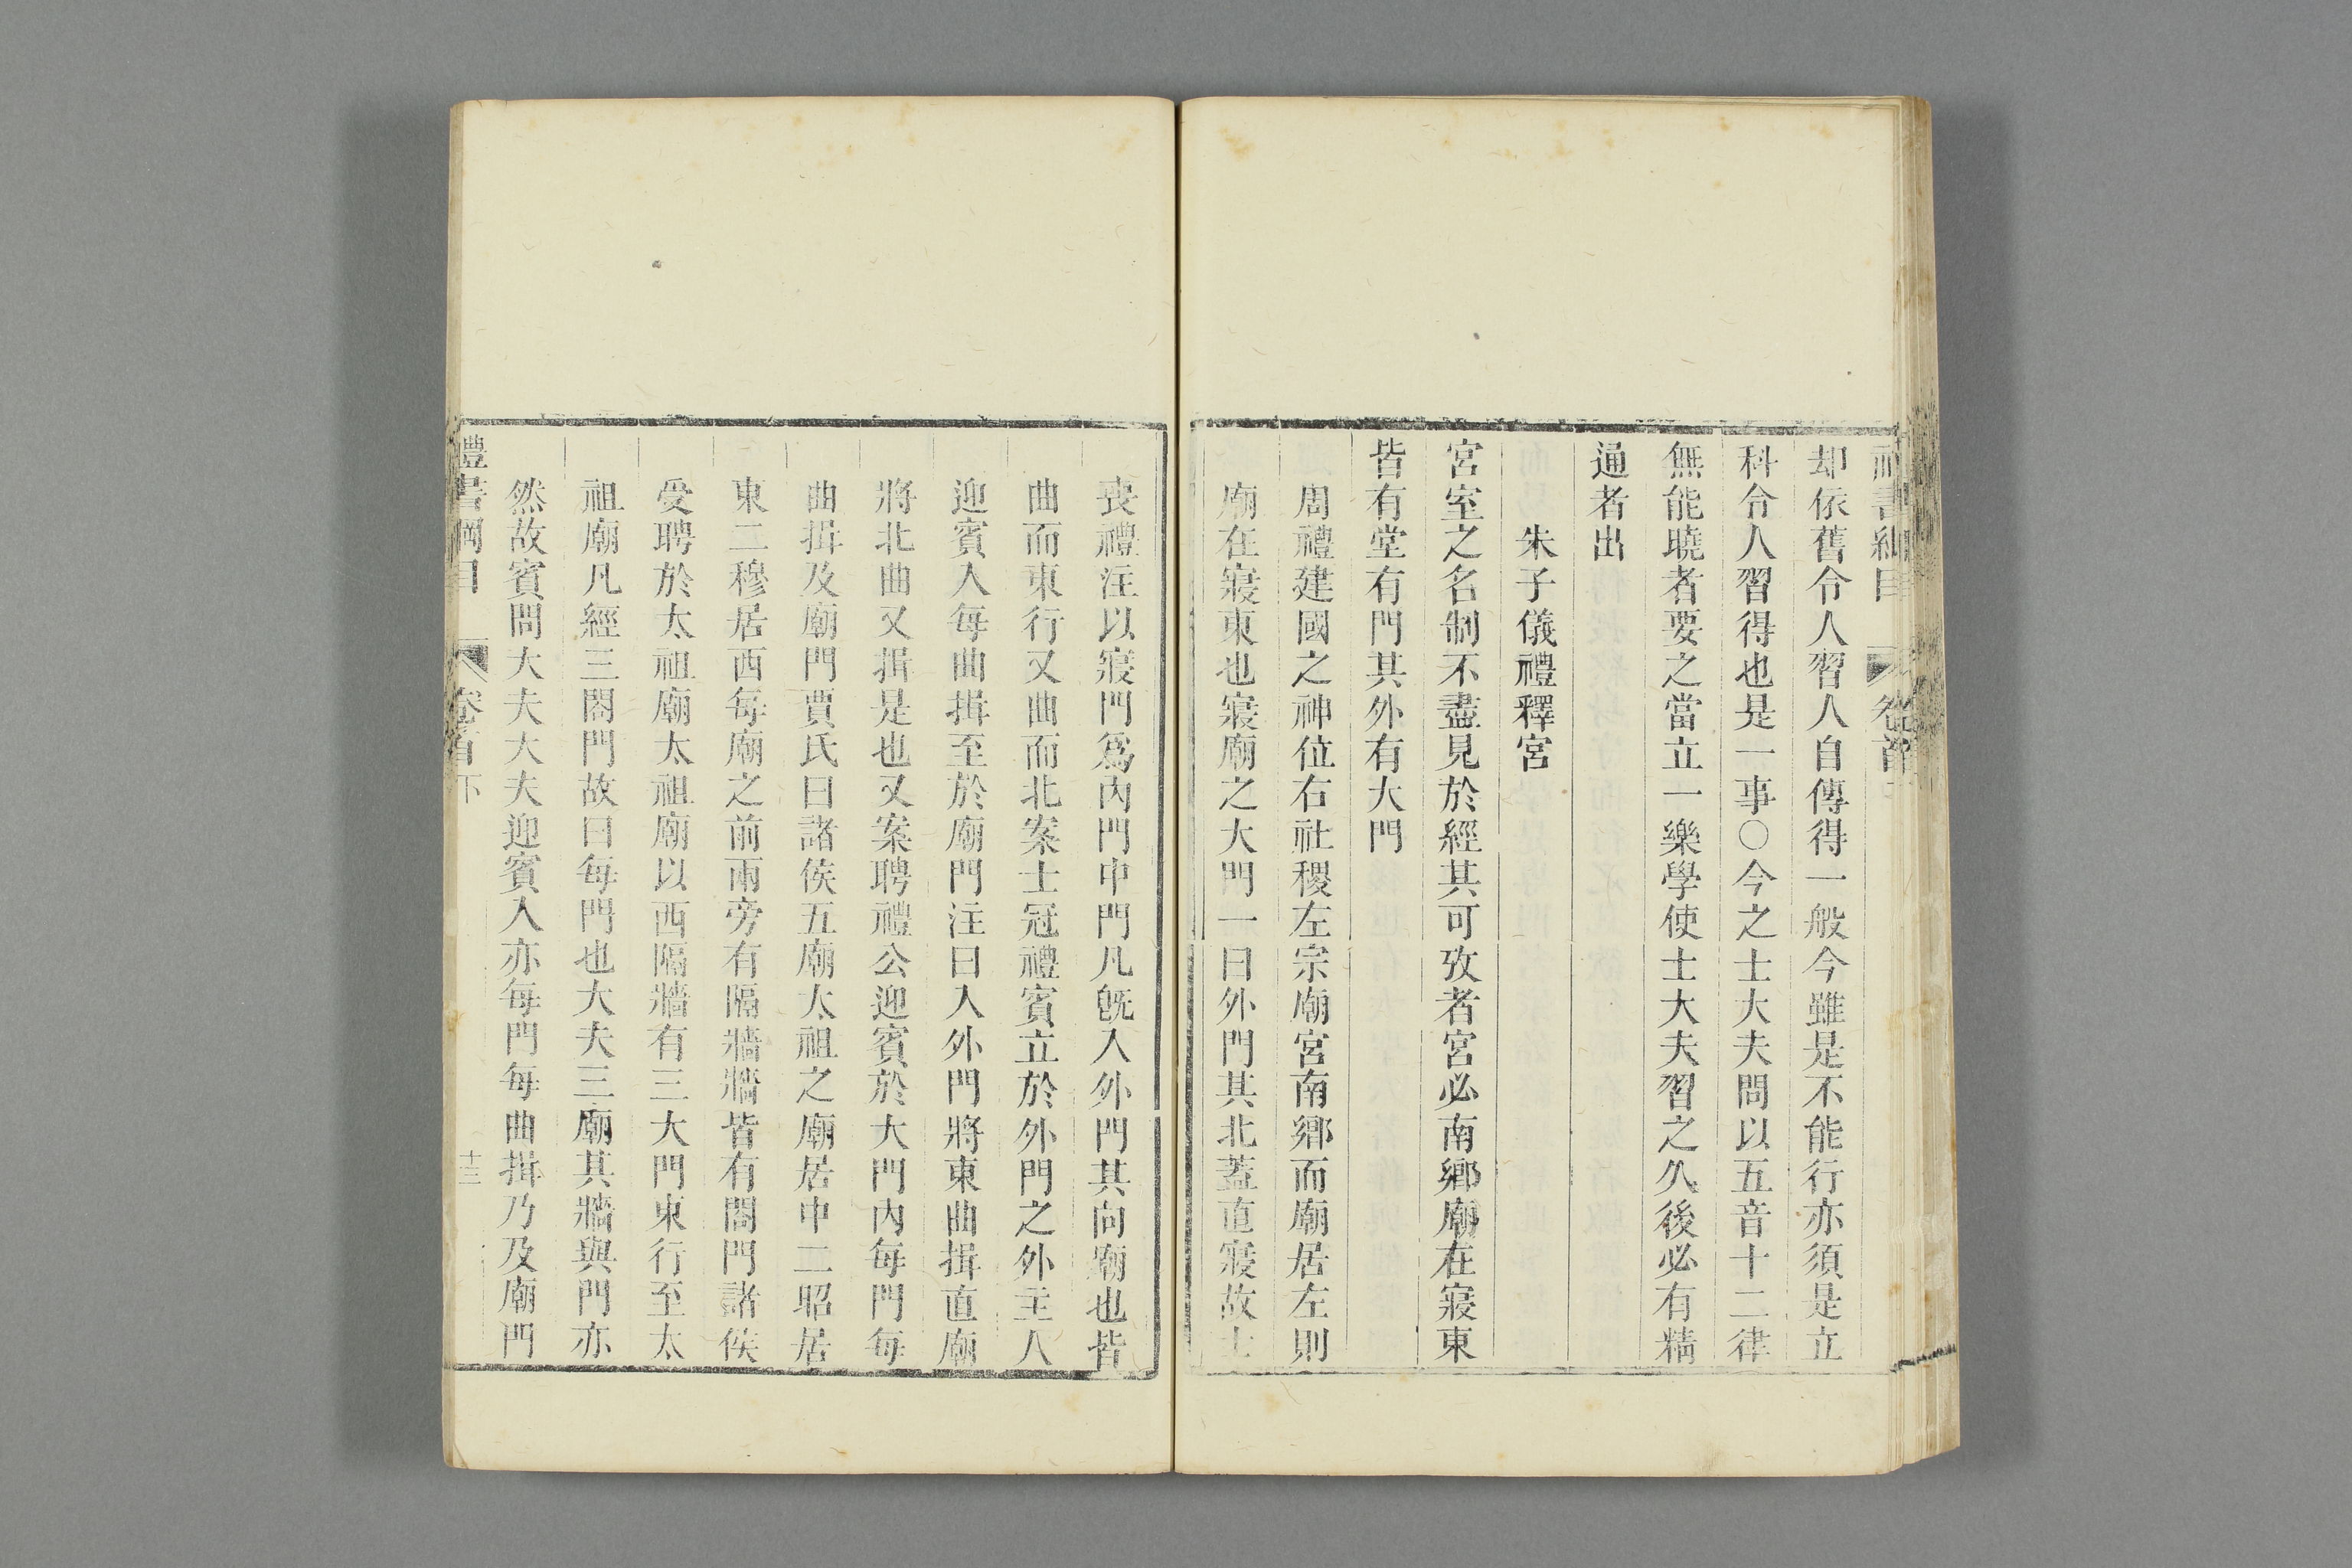 禮書綱目 卷首下
却依舊令人習人自傳得一般今雖是不能行亦須是立
科令人習得也是一事〇今之士大夫問以五音十二律
無能曉者要之當立一樂學使士大夫習之久後必有精
通者出
朱子儀禮釋宮
宮室之名制不盡見於經其可攷者宮必南鄉廟在寢東
皆有堂有門其外有大門
周禮建國之神位右社稷左宗廟宮南鄉而廟居左則
廟在寢東也寢廟之大門一曰外門其北蓋直寢故士
喪禮注以寢門爲內門中門凡旣入外門其向廟也皆
曲而東行又曲而北案士冠禮賓立於外門之外主人
迎賓入每曲揖至於廟門注曰入外門將東曲揖直廟
將北曲又揖是也又案聘禮公迎賓於大門內每門每
曲揖及廟門賈氏曰諸侯五廟太祖之廟居中二昭居
東二穆居西每廟之前兩旁有隔牆牆皆有閤門諸侯
受聘於太祖廟太祖廟以西隔牆有三大門東行至太
祖廟凡經三閤門故曰每門也大夫三廟其牆與門亦
然故賓問大夫大夫迎賓入亦每門每曲揖乃及廟門
禮書綱目 卷首下 十三